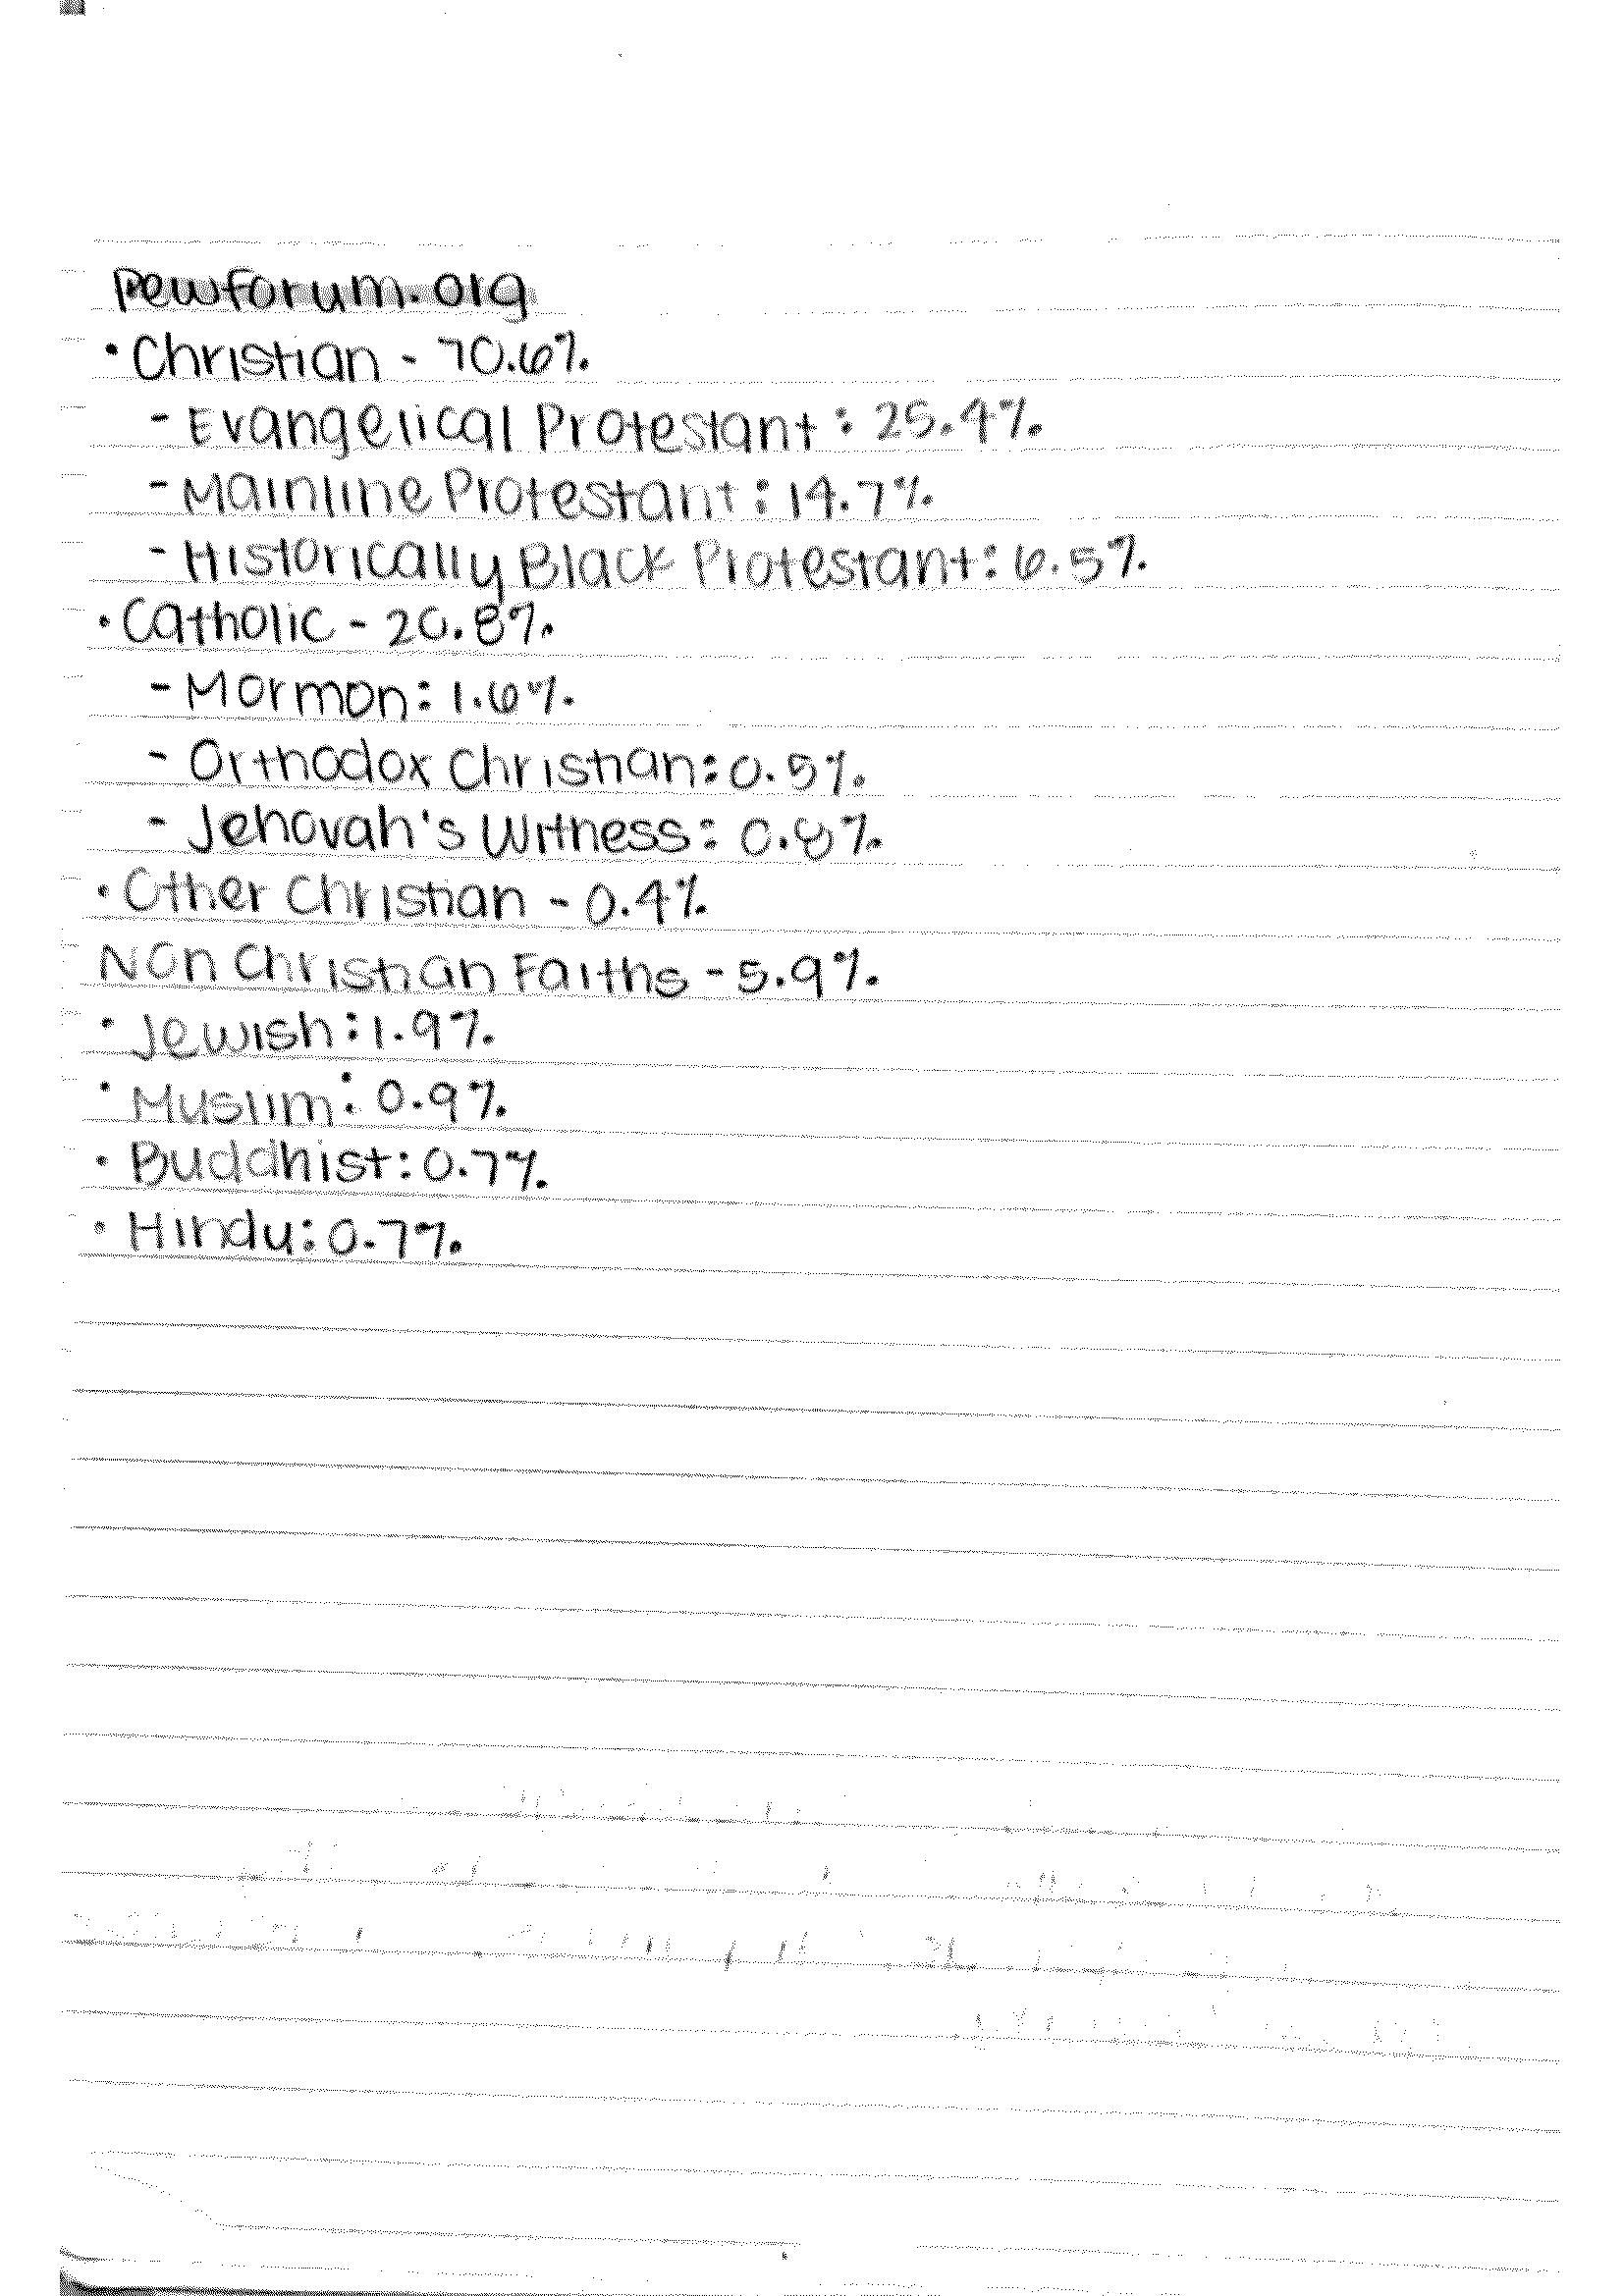 pewforum.org
• Christian - 70.6%
- Evangelical Protestant: 25.4%
- Mainline Protestant: 14.7%
- Historically Black Protestant: 6.5%
• Catholic - 20.8%
- Mormon: 1.6%
- Orthodox Christian: 0.5%
- Jehovah's Witness: 0.8%
• Other Christian - 0.4%
Non Christian Faiths - 5.9%
• Jewish: 1.9%
• Muslim: 0.9%
• Buddhist: 0.7%
• Hindu: 0.7%